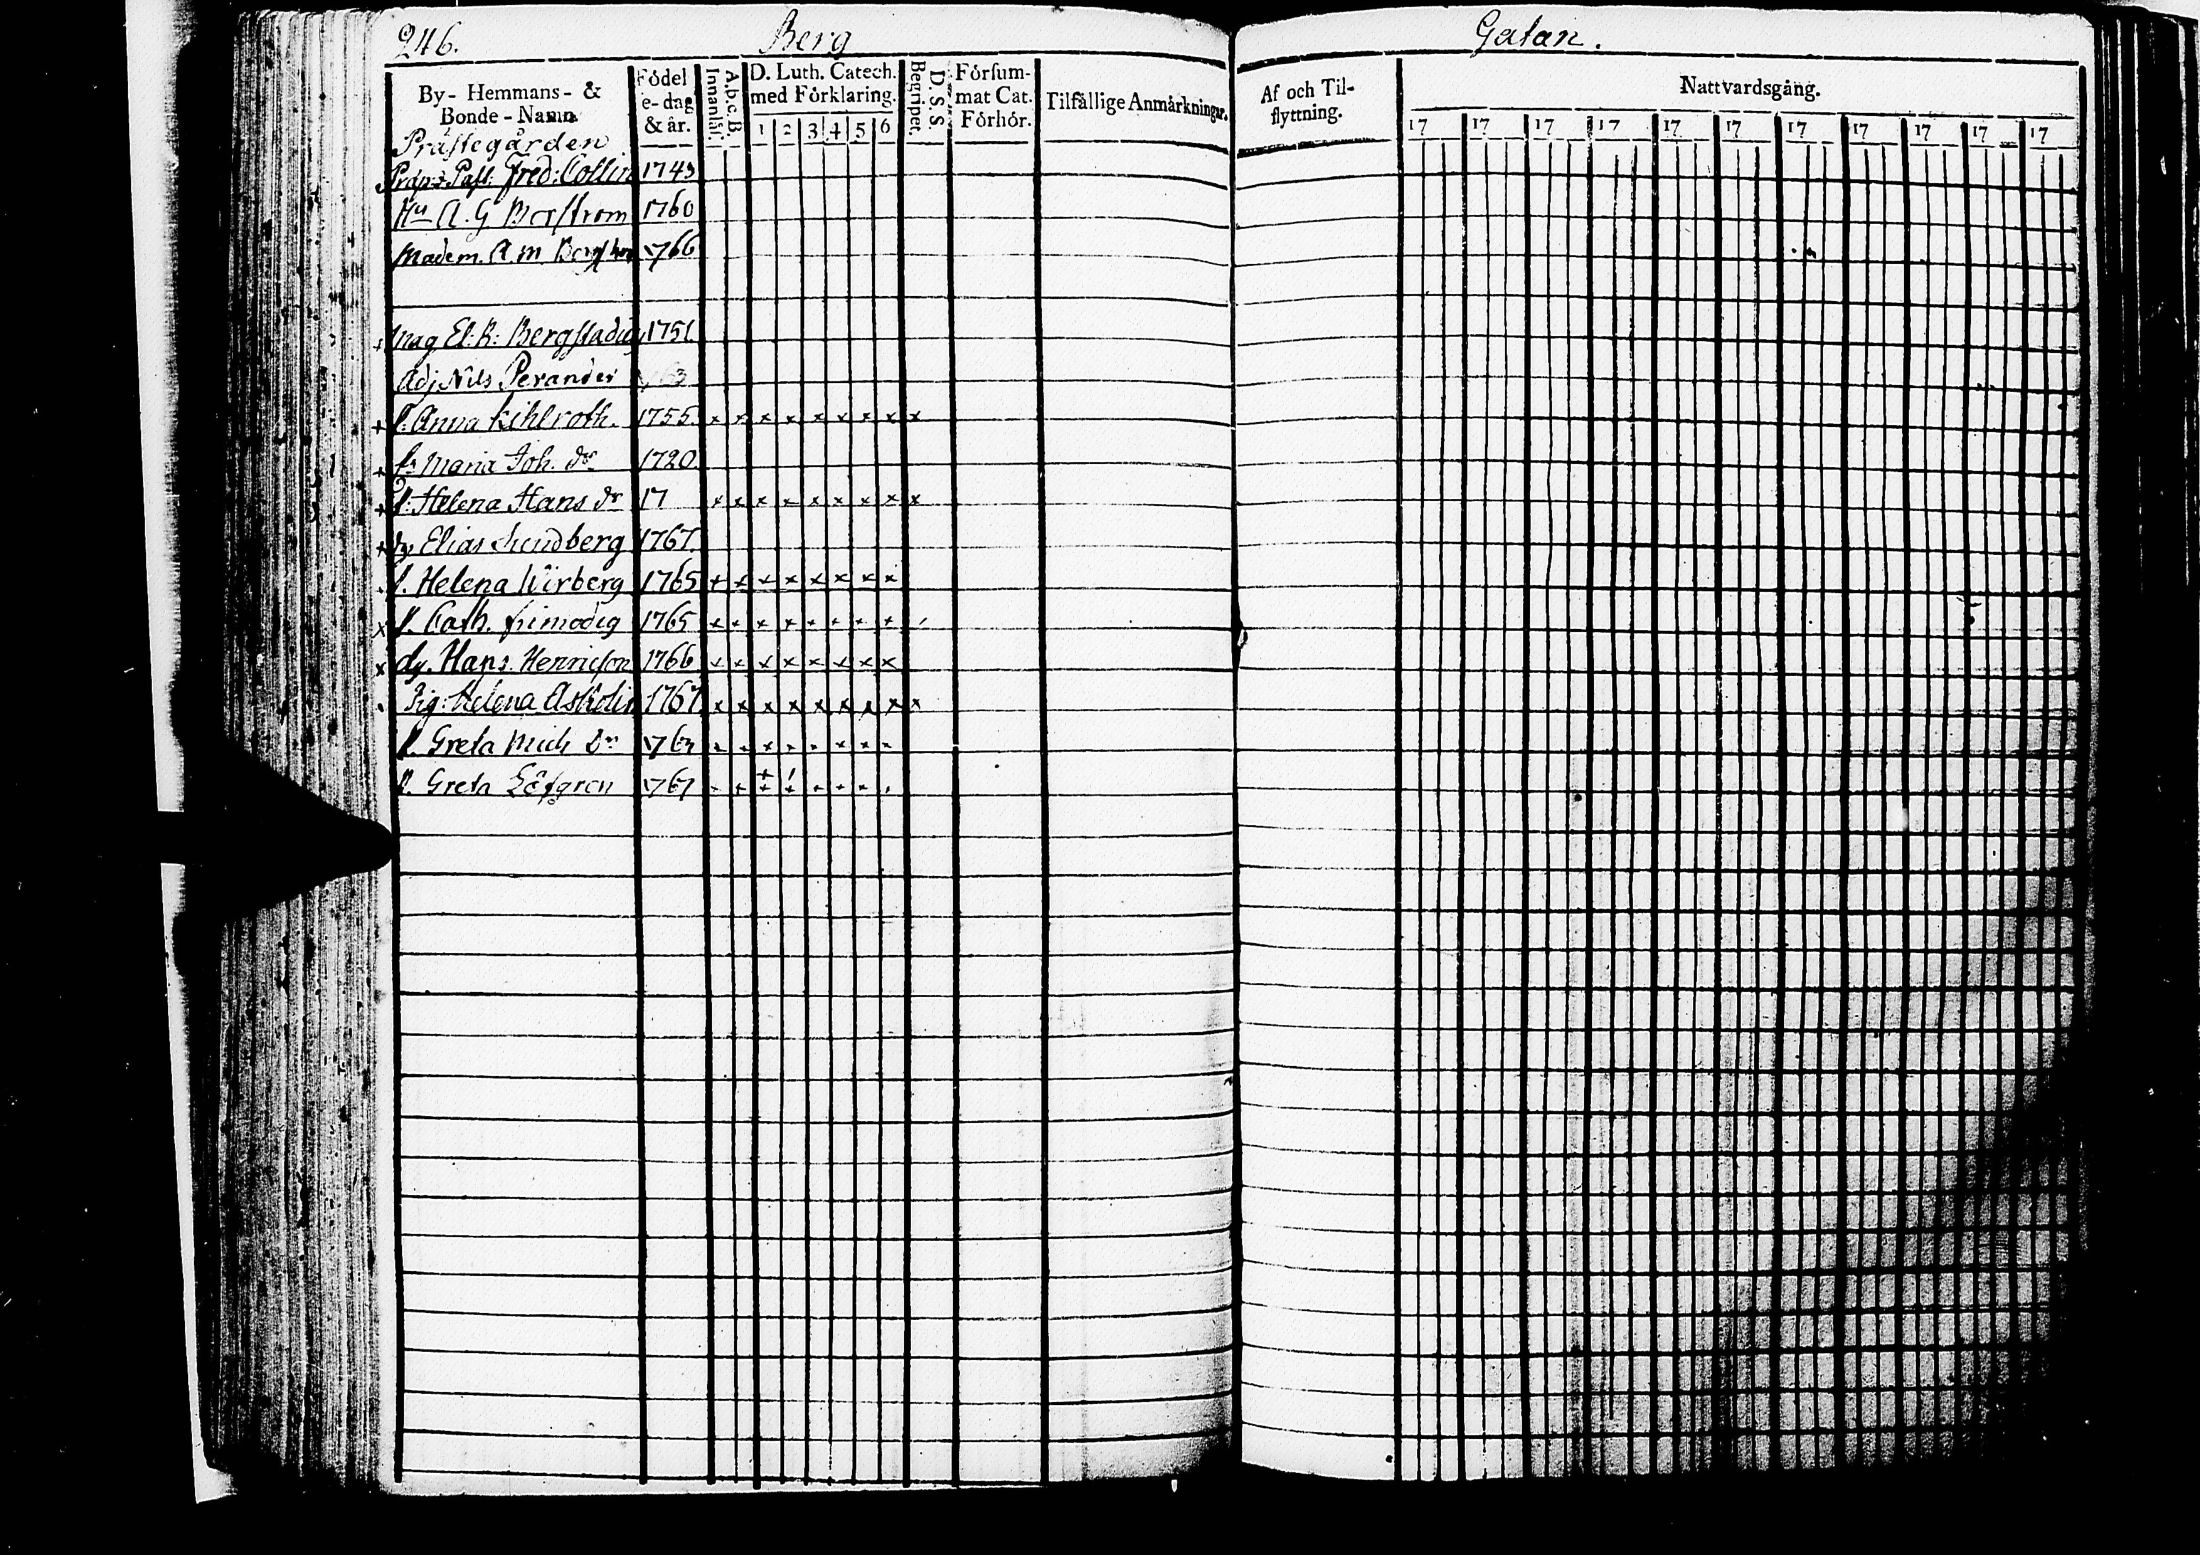 246. Berg Gatan.
By- Hemmans- & Bonde-Namn
Födelse-dag & år.
Innanläs.
A.b.c.B.
D. Luth. Catech. med Förklaring.
1 2 3 4 5 6
Begripet.
D. S. S.
Försummat Cat. Förhör.
Tilfällige Anmärkningar.
Af och Tilflyttning.
Nattvardsgång.
17 17 17 17 17 17 17 17 17 17 17
Prästegården
Prap: Past: Fred: Collin 1743
A. G 1760
Madem. A. M. 1766
Mag El: R: Bergstadius 1751
Adj Nils Perander
+ p. Anna Kihlroth. 1755. x x x x x x x x x
+ Maria Joh. dr 1720
+ p: Helena Hans dr 17 x x x x x x x x x
+ dg. Elias Lundberg 1767
p. Helena Wirberg 1765 + x x x x x x x
x p. Cath. frimodig 1765 x x x x x x x x
x dg. Hans Henricson 1766 x x x x x x x x
Pig: Helena Askolin 1767 x x x x x x x x x
p. Greta Mich dr
p. Greta Löfgren 1767